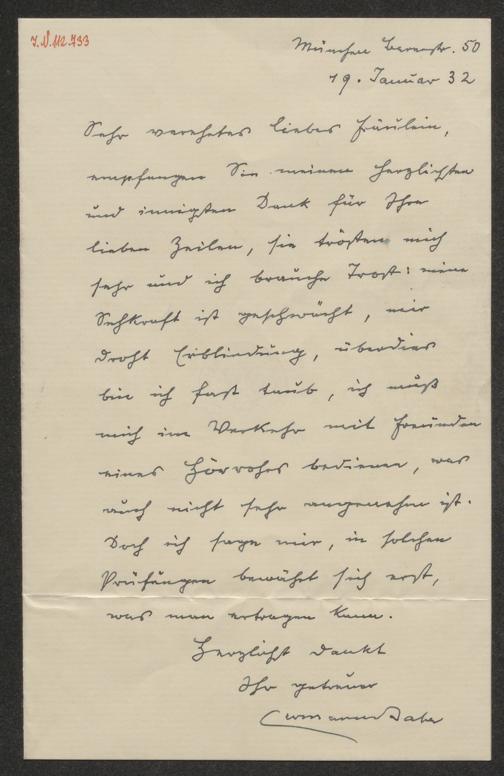 I.N. 112.733
München Barerstr. 50
19. Januar 32
Sehr verehrtes liebes Fräulein,
empfangen Sie meinen herzlichsten
und innigsten Dank für Ihre
lieben Zeilen, sie trösten mich
sehr und ich brauche Trost: meine
Sehkraft ist geschwächt, mir
droht Erblindung, überdies
bin ich fast taub, ich muß
mich im Verkehr mit Freunden
eines Hörrohrs bedienen, was
auch nicht sehr angenehm ist.
Doch ich sage mir, in solchen
Prüfungen bewährt sich erst,
was man ertragen kann.
Herzlichst dankt
Ihr getreuer